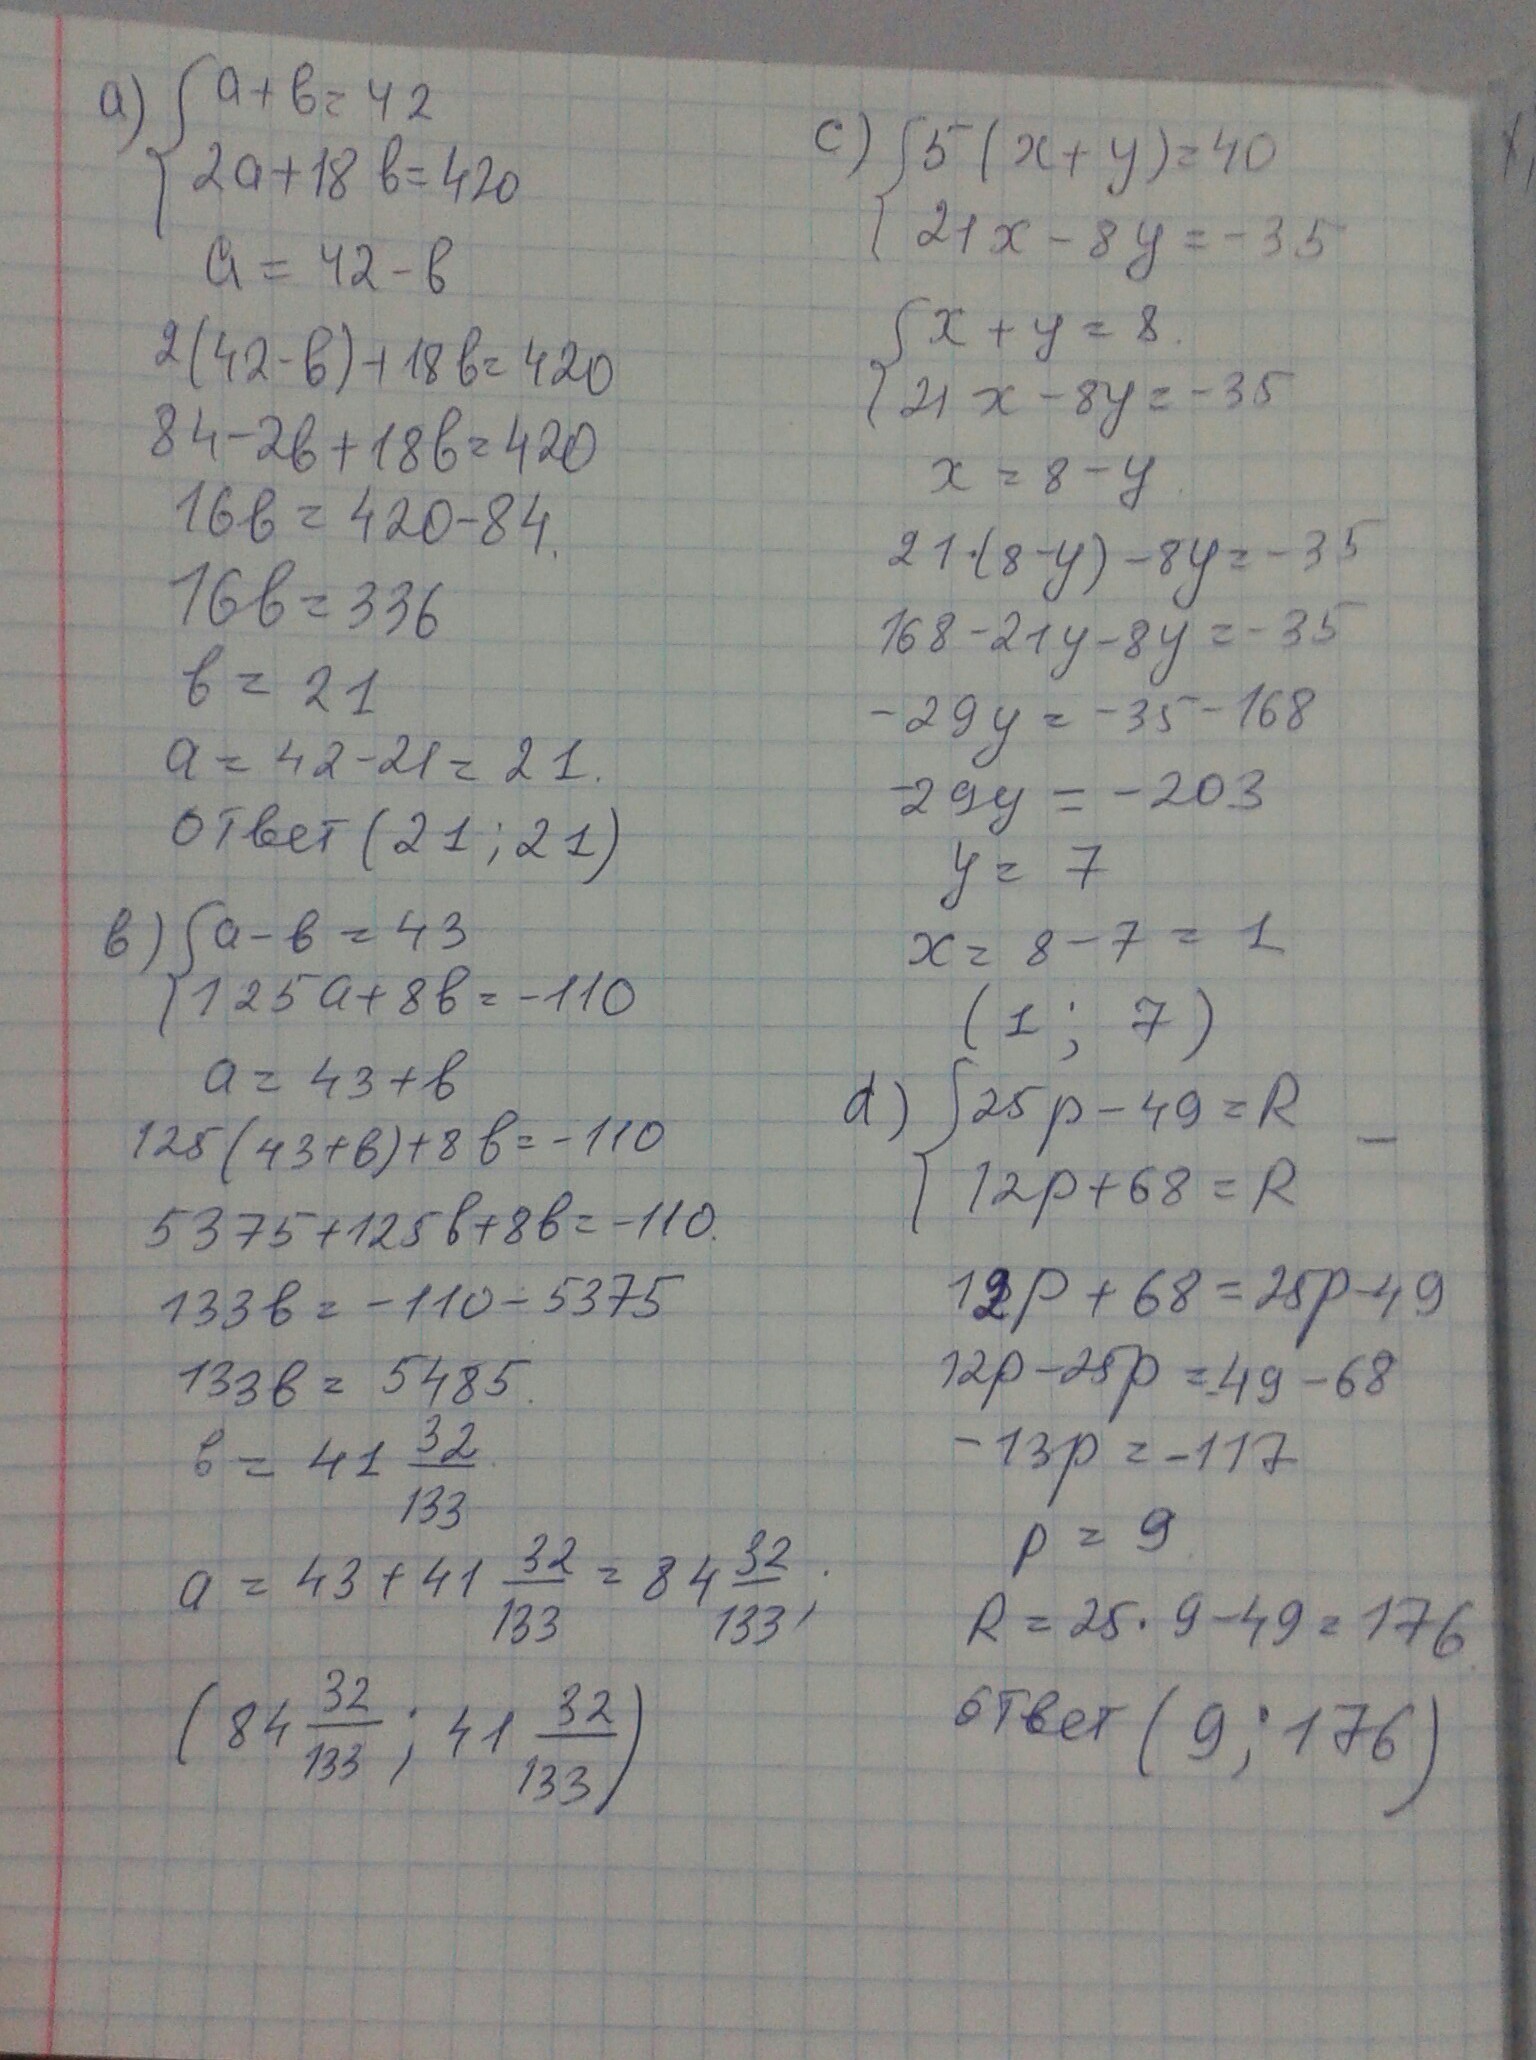 a) { a + b = 42
2a + 18b = 420
a = 42 - b
2(42 - b) + 18b = 420
84 - 2b + 18b = 420
16b = 420 - 84.
16b = 336
b = 21
a = 42 - 21 = 21.
Ответ (21; 21)
b) { a - b = 43
125a + 8b = -110
a = 43 + b
125(43 + b) + 8b = -110
5375 + 125b + 8b = -110.
133b = -110 - 5375
133b = 5485.
b = 41 32/133.
a = 43 + 41 32/133 = 84 32/133;
(84 32/133; 41 32/133)
c) { 5(x + y) = 40
21x - 8y = -35
{ x + y = 8.
21x - 8y = -35
x = 8 - y.
21·(8 - y) - 8y = -35
168 - 21y - 8y = -35
-29y = -35 - 168
-29y = -203
y = 7
x = 8 - 7 = 1
(1; 7)
d) { 25p - 49 = R -
12p + 68 = R
12p + 68 = 25p - 49
12p - 25p = -49 - 68
-13p = -117
p = 9.
R = 25·9 - 49 = 176.
Ответ (9; 176)